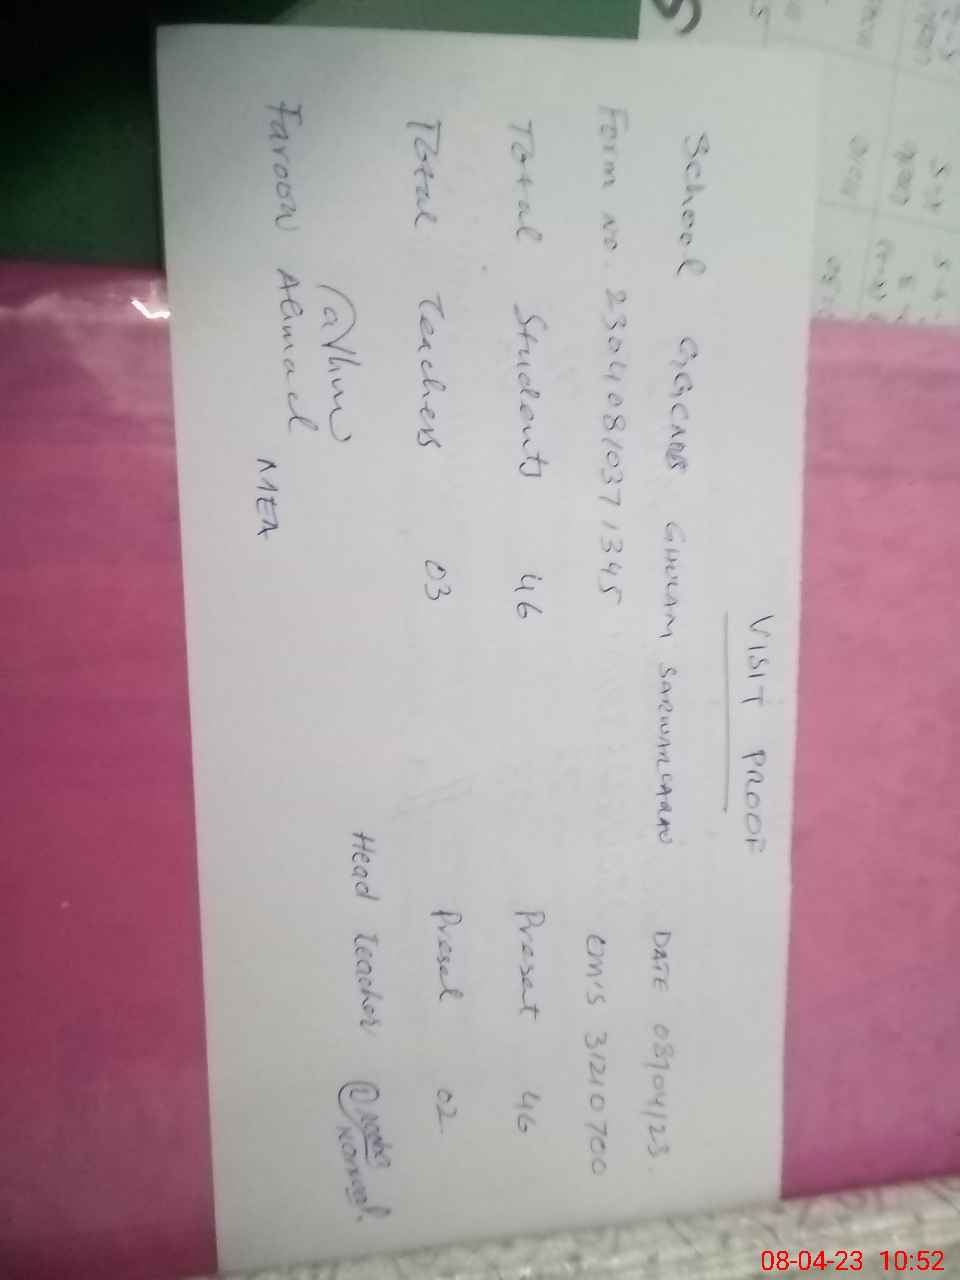 VISIT PROOF
School GGCMS GHULAM SARWAR DATE 08/04/23.
Form no. 2304081037 1345 EMIS 31210700
Total Students 46 Present 46
Total Teachers 03 Presel 02
Head Teacher
Farooq Ahmad MEA
08-04-23 10:52